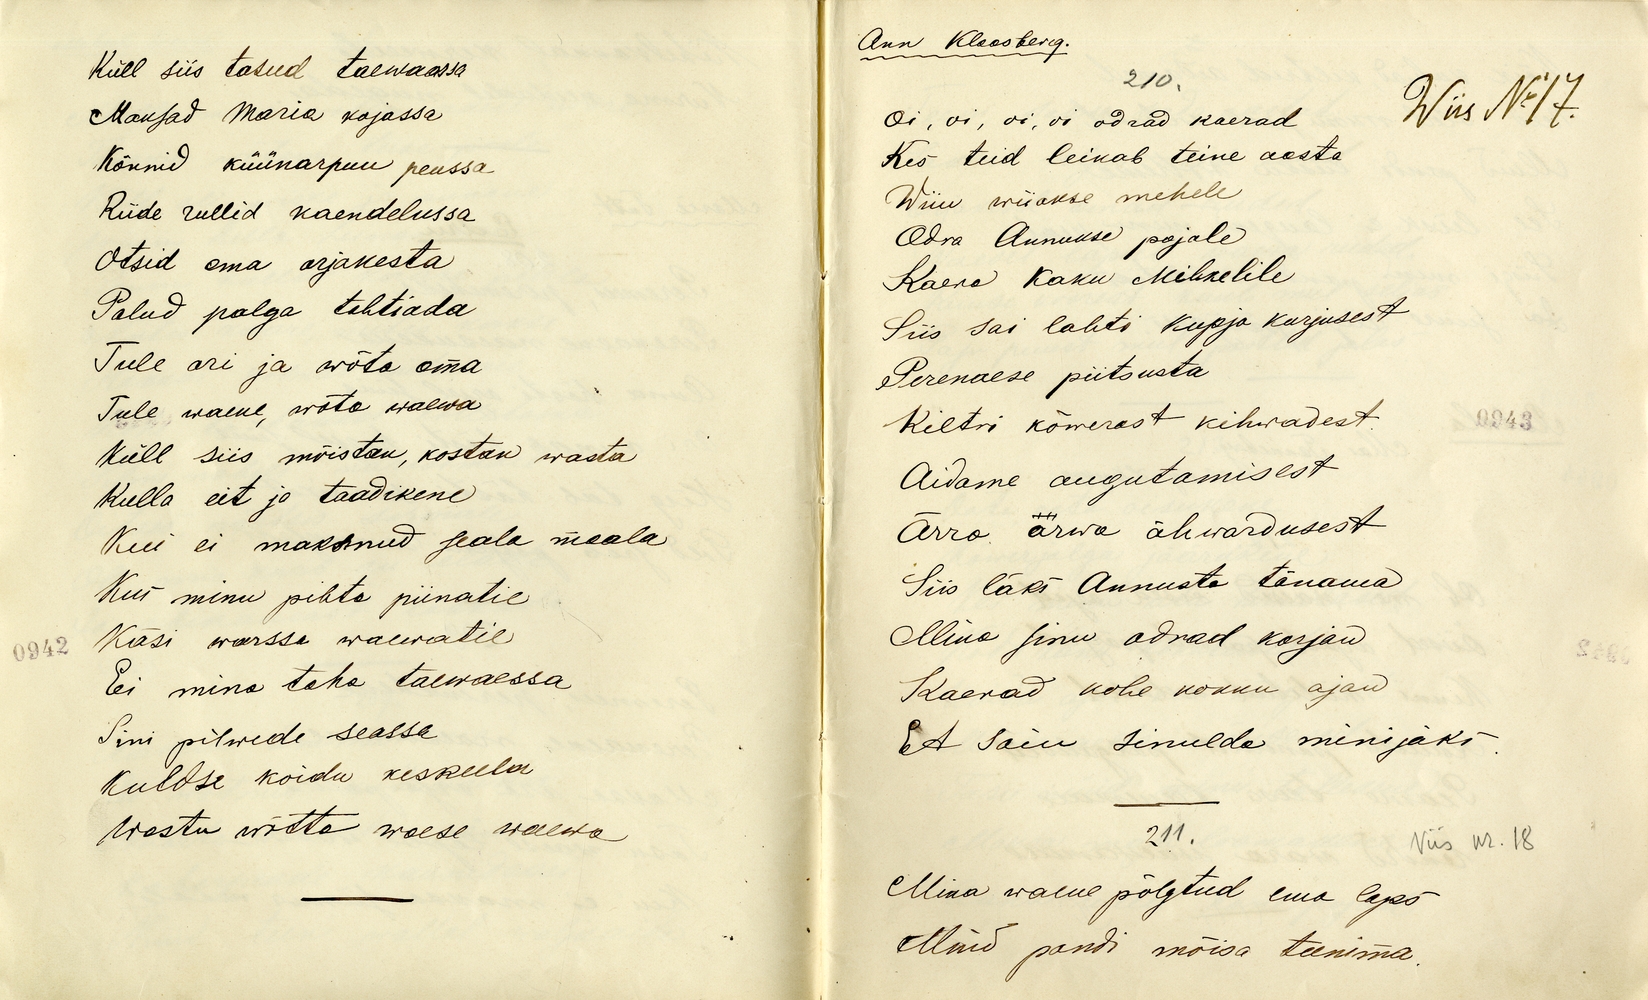 Küll siis tasud taewaassa
Maksad Maria kojassa
Kõnnid küünarpuu peussa
Riide rullid kaendelussa
Otsid oma orjakesta
Palud palga tahtiada
Tule ori ja wõta om̄a
Tule waene, wõta waewa
Küll siis mõistan, kostan wasta
Kulla eit ja taadikene
Kui ei maksnud seala maala
Kui minu pihta piinatie
Käsi warssa waewatie
0942
Ei mina taha taewaessa
Sini pilwede seassa
Kuldse koidu keskeela
Wastu wõtta waese waewa
Ann Kloosberg.
210.
Wiis № 17.
Oi, oi, oi, oi odrad kaerad
Kes teid leikab teine aasta
Wiiu wiiakse mehele
Odra Annukse pojale
Kaera Kaku Mihkelile
Siis sai lahti kupja karjusest
Perenaese piitsusta
Kiltri kõwerast kihwadest
0943
Aidame augutamisest
Ärra ärwa ähwardusest
Siis läks Annusta tänama
Mina sinu odrad korjan
Kaerad kohe kokku ajan
Et sain sinulda minijäks.
211.
Viis nr. 18
Mina waene põlgtud ema laps
Mind pandi mõisa teenim̄a.